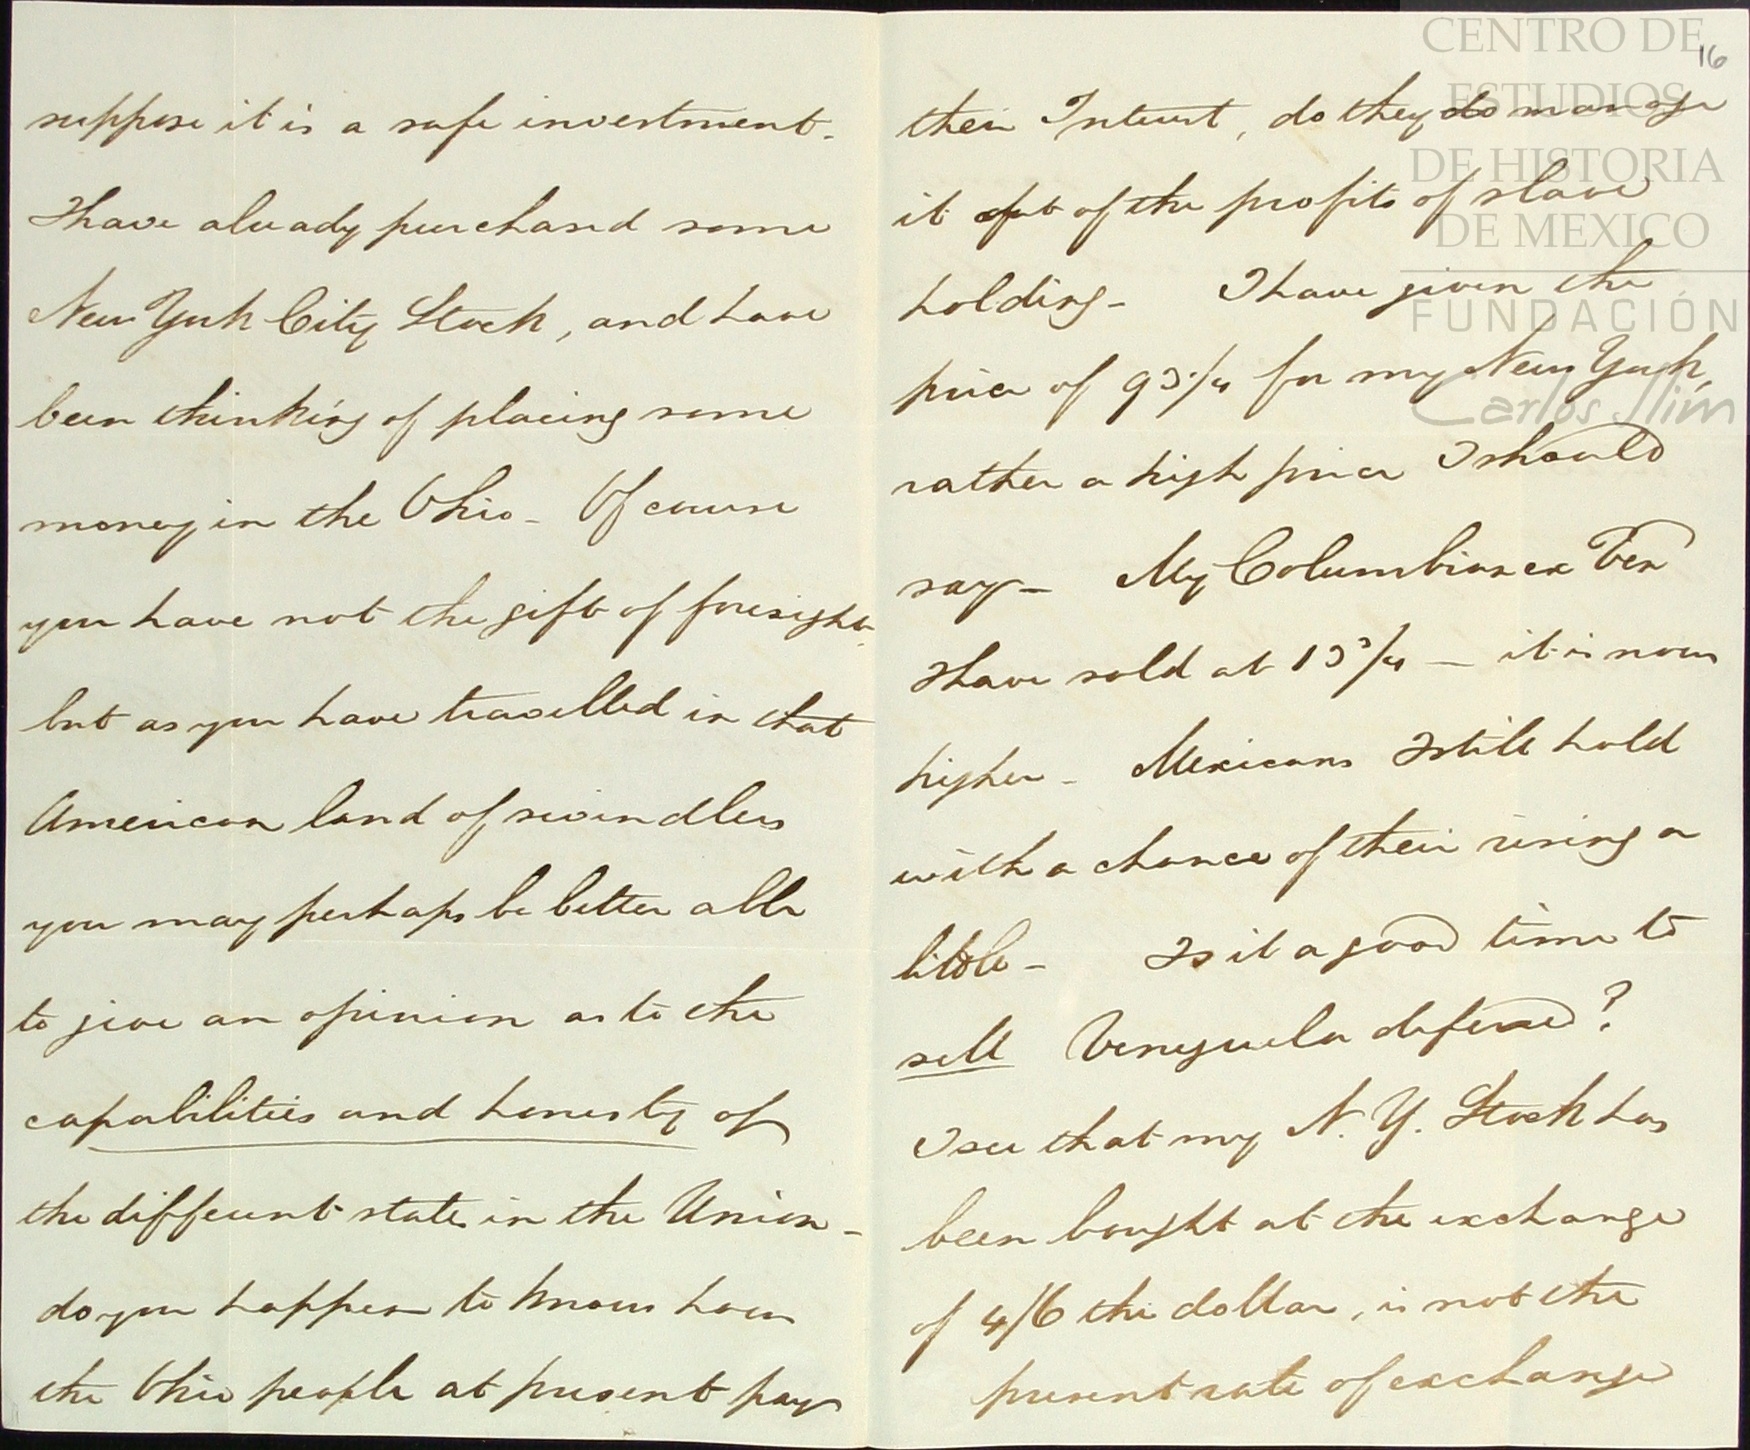 suppose it is a safe investment.
I have already purchased some
New York City Stock, and have
been thinking of placing some
money in the Ohio - Of course
you have not the gift of foresight
but as you have travelled in that
American land of swindlers
you may perhaps be better able
to give an opinion as to the
capabilities and honesty of
the different states in the Union -
do you happen to know how
the Ohio people at present pay
16
their Interest, do they do manage
it out of the profits of slave
holding - I have given the
price of 93 1/4 for my New York,
rather a high price I should
say - My Columbian ex Ven
I have sold at 13 3/4 - it is now
higher - Mexicans I still hold
with a chance of their rising a
little - Is it a good time to
sell Venezuela deferred?
I see that my N. Y. Stock has
been bought at the exchange
of 4/6 the dollar, is not the
present rate of exchange
CENTRO DE
ESTUDIOS
DE HISTORIA
DE MEXICO
FUNDACIÓN
Carlos Slim